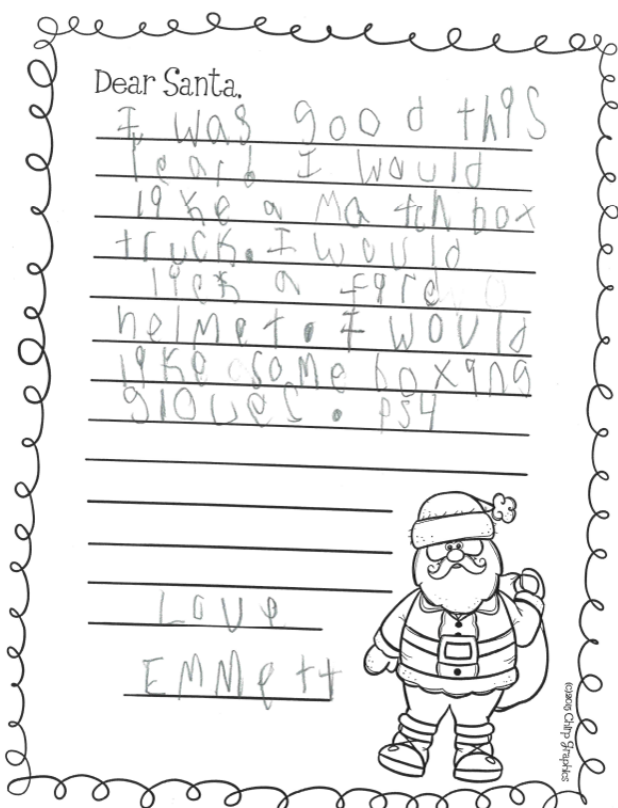 Dear Santa,
I was good this
Year. I would
like a Matchbox
truck. I would
lick a fire
helmet. I would
like some boxing
gloves. ps4
Love
EMMett
(c)2015 Chirp Graphics